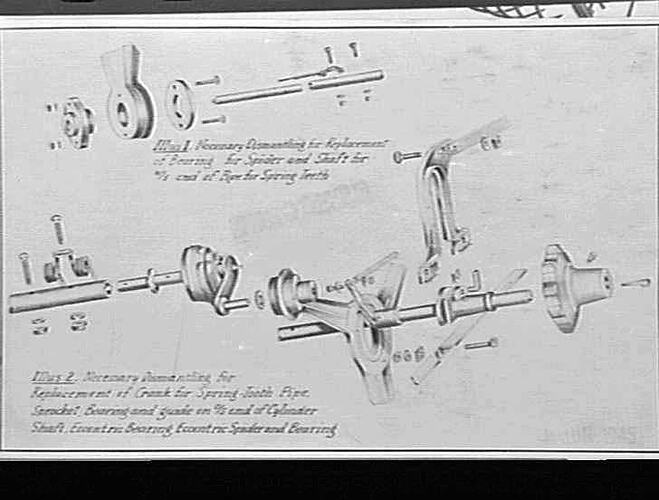 Illus 1. Necessary Dismantling for Replacement
of Bearing for Spider and Shaft for
O/S end of Pipe for Spring Teeth
Illus 2. Necessary Dismantling for
Replacement of Crank for Spring-Tooth Pipe,
Sprocket, Bearing and guide on O/S end of Cylinder
Shaft, Eccentric Bearing, Eccentric Spider and Bearing